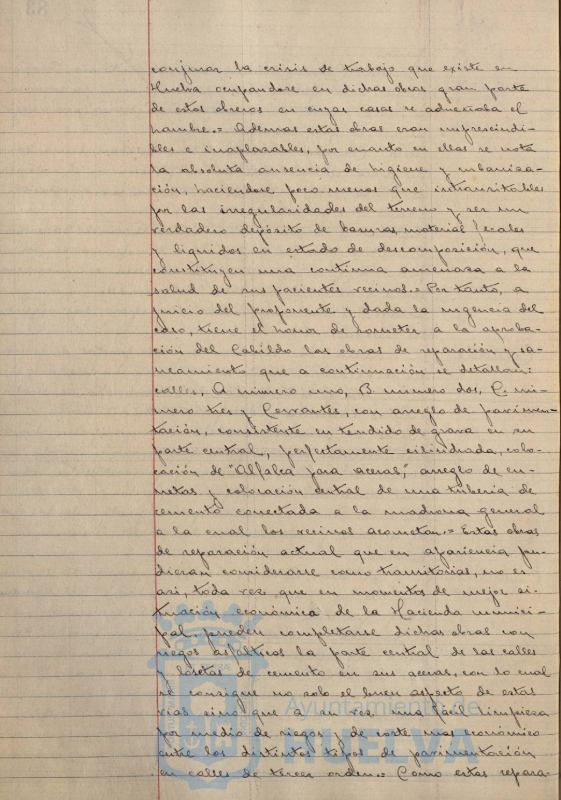 conjurar la crisis de trabajo que existe en
Huelva ocupandose en dichas obras gran parte
de estos obreros en cuyas casas se adueñaba el
hambre.= Ademas estas obras eran imprescindi-
bles e inaplazables, por cuanto en ellas se nota
la absoluta ausencia de higiene y urbaniza-
ción, haciendose poco menos que intransitables
por las irregularidades del terreno y ser un
verdadero depósito de basuras, material fecales
y liquidos en estado de descomposición, que
constituyen una continua amenaza a la
salud de sus pacientes vecinos.= Por tanto, a
juicio del proponente y dada la urgencia del
caso, tiene el honor de someter a la aproba-
ción del Cabildo las obras de reparación y sa-
neamiento que a continuación se detallan:
calles, A número uno, B número dos, C. nú-
mero tres y Cervantes, con arreglo de pavimen-
tación, consistente en tendido de grava en su
parte central, perfectamente cilindrada, colo-
cación de "Alfalca para aceras," arreglo de cu-
netas y colocación central de una tuberia de
cemento conectada a la madrona general
a la cual los vecinos acometan.= Estas obras
de reparación actual que en apariencia pu-
dieran considerarse como transitorias, no es
asi, toda vez que en momentos de mejor si-
tuación económica de la Hacienda munici-
pal, pueden completarse dichas obras con
riegos asfálticos la parte central de las calles
y losetas de cemento en sus aceras, con lo cual
se consigue no solo el buen aspecto de estas
vias sino que a su vez una facil limpieza
por medio de riegos y de coste mas económico
entre los distintos tipos de pavimentación
en calles de tercer orden.= Como estas repara-
Ayuntamiento de
HUELVA